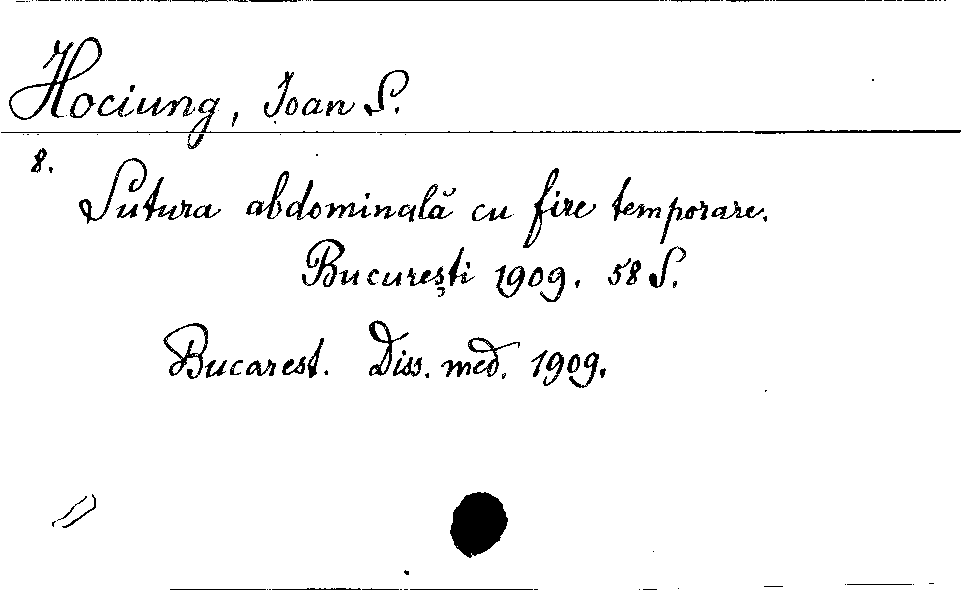 Hociung, Ioan S.
8.
Sutura abdominală cu fire temporare.
București 1909. 58 S.
Bucarest. Diss. med. 1909.